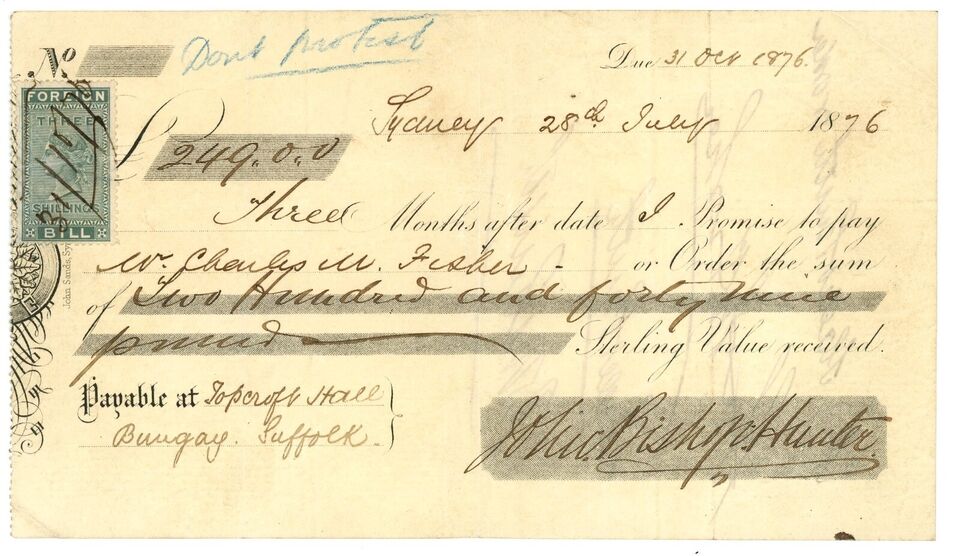 Dont protest
No
Due 31 Oct 1876.
FOREIGN
THREE
SHILLINGS
BILL
Sydney 28th July 1876
£249.0.0
Three Months after date I Promise to pay
Mr. Charles M. Fisher - or Order the sum
of Two Hundred and forty nine
pounds Sterling Value received.
Payable at Topcroft Hall
Bungay. Suffolk.
John Bishop Hunter
John Sands, Sy